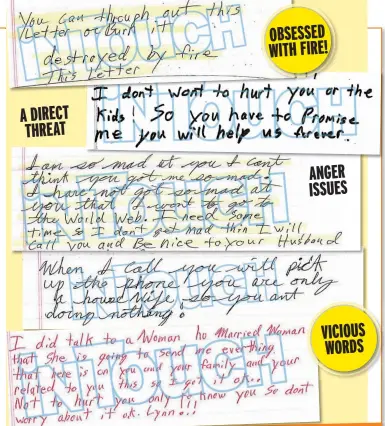 You can through out this
Letter or burn it
destroyed by fire
This letter
OBSESSED
WITH FIRE!
I don't want to hurt you or the
Kids! So you have to Promise
me you will help us forever.
A DIRECT
THREAT
I am so mad at you I cant
think you got me so mad.
I have not got so mad at
you that I want to go to
the World Web. I need some
time so I don't get mad then I will
call you and Be nice to your Husband
ANGER
ISSUES
When I call you will pick
up the phone you are only
a house Wife so you ant
doing nothing.
I did talk to a Woman ho Married Woman
that She is going to send me everthing
that here is on you and your family and your
related to you this so I get it ok..
Not to hurt you only to know you so dont
worry about it ok. Lynn..!
VICIOUS
WORDS
INTOUCH
INTOUCH
INTOUCH
INTOUCH
INTOUCH